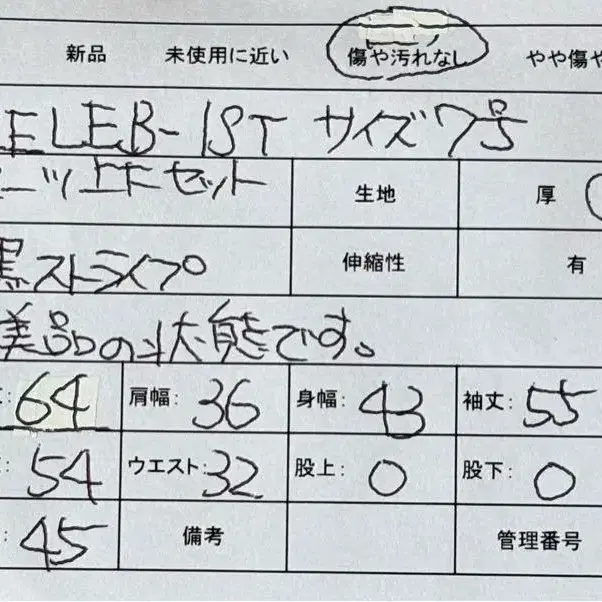 新品 未使用に近い 傷や汚れなし やや傷や
ELEB-IST サイズ7号
ーツ上下セット 生地 厚
黒ストライプ 伸縮性 有
美品の状態です。
: 64 肩幅: 36 身幅: 43 袖丈: 55
: 54 ウエスト: 32 股上: 0 股下: 0
: 45 備考 管理番号